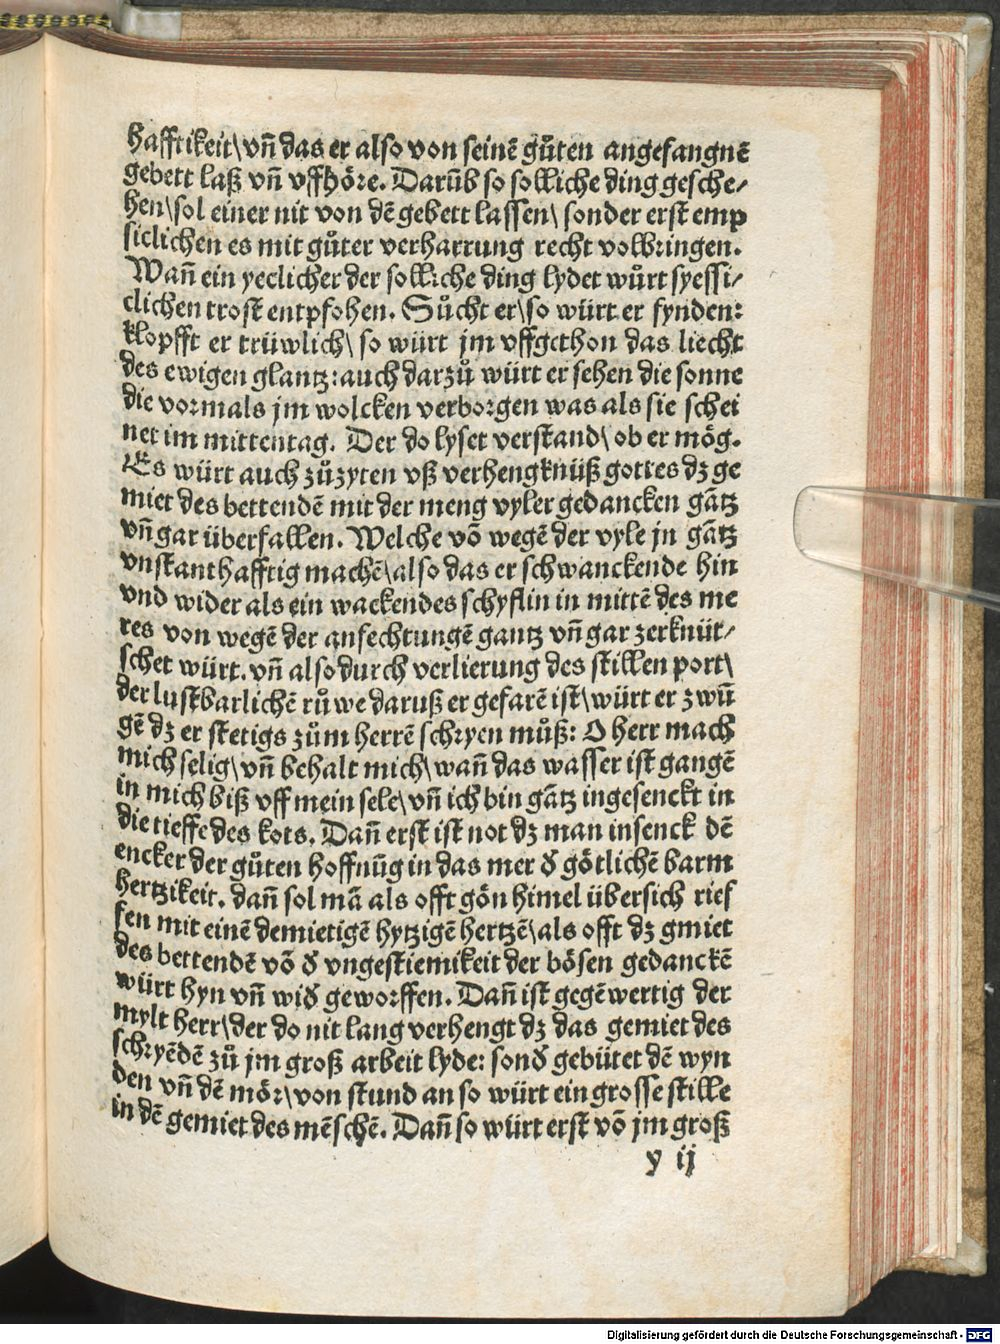 hafftikeit\ vñ das er also von seinē gůten angefangnē
gebett laß vñ vffhöre. Darūb so solliche ding gesche⸗
hen\ sol einer nit von dē gebett lassen\ sonder erst emp
siclichen es mit gůter verharrung recht volbringen.
Wañ ein yeclicher der solliche ding lydet würt syessi⸗
clichen trost entpfohen. Sůcht er\ so würt er fynden:
klopfft er trüwlich\ so würt jm vffgethon das liecht
des ewigen glantz: auch darzů würt er sehen die sonne
die vormals jm wolcken verborgen was als sie schei
net im mittentag. Der do lyset verstand\ ob er mög.
Es würt auch zůzyten vß verhengknüß gottes dz ge
miet des bettendē mit der meng vyler gedancken gātz
vñ gar überfallen. Welche vō wegē der vyle jn gātz
vnstanthafftig machē\ also das er schwanckende hin
vnd wider als ein wackendes schyflin in mittē des me
res von wegē der anfechtungē gantz vñ gar zerknüt⸗
schet würt. vñ also durch verlierung des stillen port\
der lustbarlichē růwe daruß er gefarē ist\ würt er zwū
gē dz er stetigs zům herrē schryen můß: O herr mach
mich selig\ vñ behalt mich\ wañ das wasser ist gangē
in mich biß vff mein sele\ vñ ich bin gātz ingesenckt in
die tieffe des kots. Dañ erst ist not dz man insenck dē
encker der gůten hoffnūg in das mer ď götlichē barm
hertzikeit. dañ sol mā als offt gön himel übersich rief
fen mit einē demietigē hytzigē hertzē\ als offt dz gmiet
des bettendē vō ď vngestiemikeit der bösen gedanckē
würt hyn vñ wiď geworffen. Dañ ist gegēwertig der
mylt herr\ der do nit lang verhengt dz das gemiet des
schryēdē zů jm groß arbeit lyde: sonď gebütet dē wyn
den vñ dē mör\ von stund an so würt ein grosse stille
in dē gemiet des mēschē. Dañ so würt erst vō jm groß
y ij
Digitalisierung gefördert durch die Deutsche Forschungsgemeinschaft - DFG